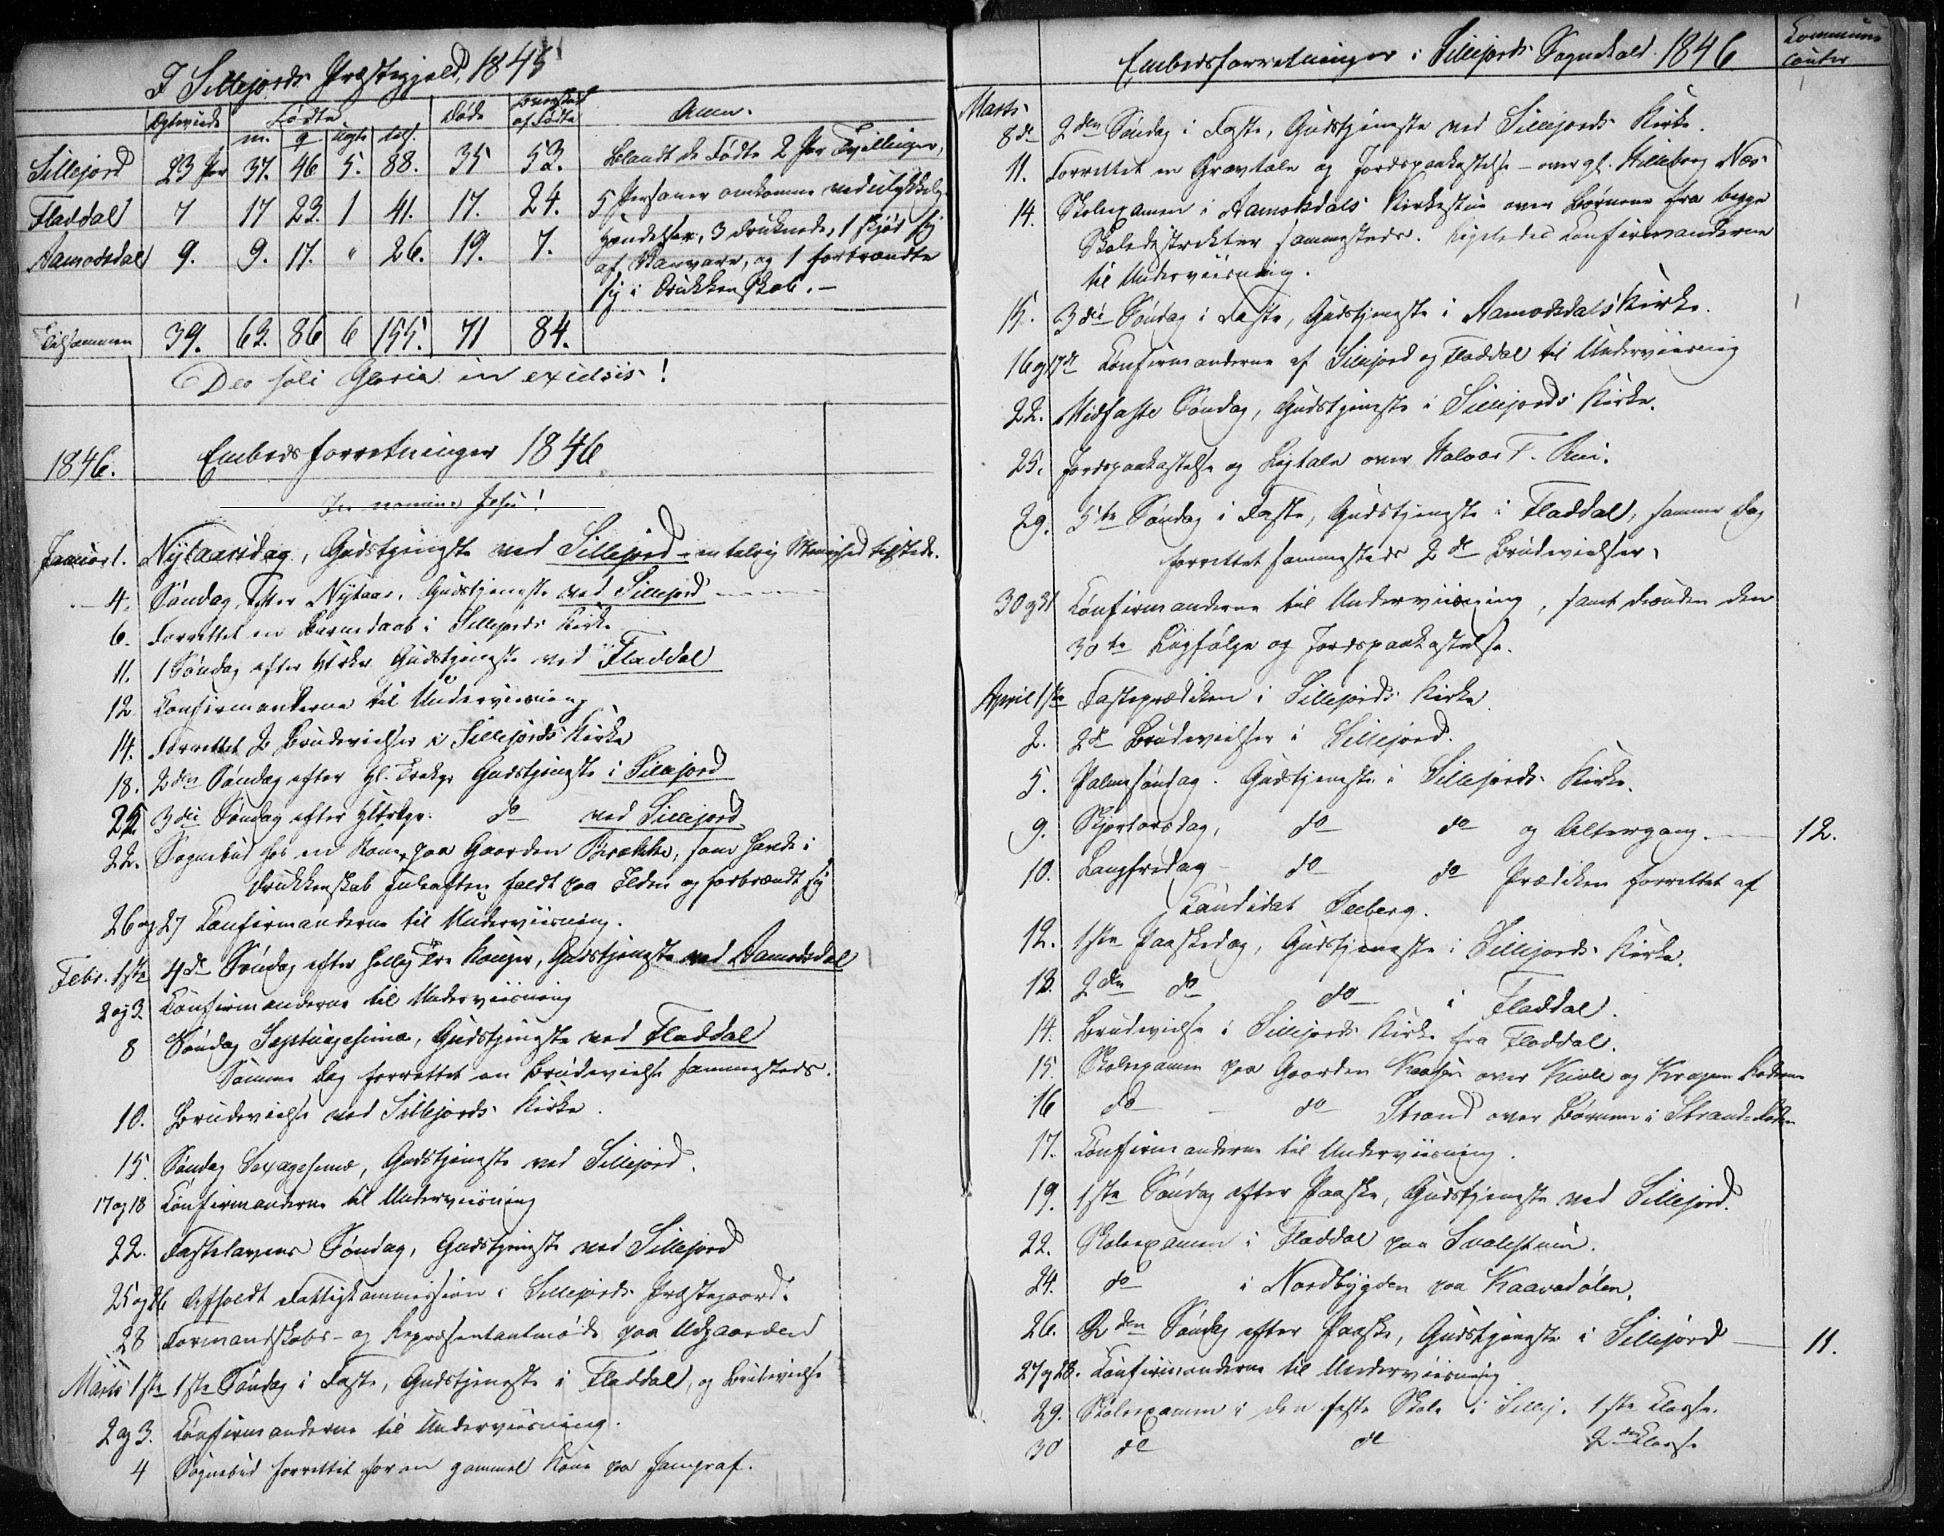 I Sillejords Præstegjeld, 1845
Egteviede Fødte Døde Overskud af Fødte Anm.
m. q uægte tils.
Sillejord 23 Par 37. 46 5. 88. 35 53. Blandt de Fødte 2 Par Tvillinger,
Fladdal 7 17 23. 1 41. 17. 24. 5 Personer omkomne ved ulykkelig
Aamodsdal 9. 9. 17. " 26. 19. 7. Hændelser, 3 druknede, 1 skjød sig
af Vanvare, og 1 forbrændte
sig i Drukkenskab. –
Tilsammen 39. 63. 86 6 155. 71 84.
Deo soli Gloria in exielsis!
1846. Embedsforretninger 1846
In nomine Jesu!
Januar 1. Nytaarsdag, Gudstjeneste ved Sillejord – en talrig Menighed tilstede.
– 4. Søndag efter Nytaar, Gudstjeneste ved Sillejord
6. Forrettet en Barnedaab i Sillejords Kirke
11. 1 Søndag efter Gudstjeneste ved Fladdal
12 Confirmanderne til Underviisning
14. Forrettet 2 Brudevielser i Sillejords Kirke
18. 2den Søndag efter Hl. Trekgr Gudstjeneste i Sillejord
25 3die Søndag efter Hltrkgr. do ved Sillejord
22. Sognebud hos en Kone paa Gaarden Brække, som havde i
Drukkenskab Juleaften faldt paa Ilden og forbrændt sig
26 og 27 Confirmanderne til Underviisning.
Febr. 1ste 4de Søndag efter Hellig Tre Konger, Gudstjeneste ved Aamodsdal
2 og 3. Confirmanderne til Underviisning
8 Søndag Septuagesima, Gudstjeneste ved Fladdal
Samme Dag forrettet en Brudevielse sammesteds.
10. Brudevielse ved Sillejords Kirke.
15. Søndag Sexagesima, Gudstjeneste ved Sillejord.
17 og 18 Confirmanderne til Underviisning
22. Fastelavens Søndag, Gudstjeneste ved Sillejord
25 og 26 Afholdt Fattigkommission i Sillejords Præstegaard.
28 Formandskabs- og Repræsentantmøde paa Udgaarden
Marts 1ste 1ste Søndag i Faste, Gudstjeneste i Fladdal, og Brudevielse
2 og 3. Confirmanderne til Underviisning.
4 Sognebud forrettet for en gammel Kone paa
Embedsforretninger i Sillejords Sognekald 1846 Kommunicanter
Marts
8de 2den Søndag i Faste, Gudstjeneste ved Sillejords Kirke.
11. Forrettet en Gravtale og Jordspaakastelse – over gl. Næs
14. Skolexamen i Aamodsdals Kirkestue over Børnene fra begge
Skoledistrikter sammesteds. Ligeledes Confirmanderne
til Underviisning.
15. 3die Søndag i Faste, Gudstjeneste i Aamodsdals Kirke.
16 og 17de Confirmanderne af Sillejord og Fladdal til Underviisning
22. Midfaste Søndag, Gudstjeneste i Sillejords Kirke.
25. Jordspaakastelse og Ligtale over Halvor T.
29. 5te Søndag i Faste, Gudstjeneste i Fladdal, samme Dag
forrettet sammesteds 2de Brudevielser.
30 og 31 Confirmanderne til Underviisning, samt den
30te Ligfølge og Jordspaakastelse.
April 1ste Fasteprædiken i Sillejords Kirke.
2. 2de Brudevielser i Sillejord.
5. Palmesøndag. Gudstjeneste i Sillejords Kirke.
9. Skjertorsdag, do do og Altergang. 12.
10. Langfredag – do do Prædiken forrettet af
Candidat Seeberg.
12. 1ste Paaskedag, Gudstjeneste i Sillejords Kirke.
13. 2den do do i Fladdal.
14. Brudevielse i Sillejords Kirke fra Fladdal.
15. Skolexamen paa Gaarden over og Roderne
16 do – do Strand over Børnene i Strands Roden
17. Confirmanderne til Underviisning.
19. 1ste Søndag efter Paaske, Gudstjeneste ved Sillejord.
22. Skolexamen i Fladdal paa
24. do i Nordbygden paa Kaavedølen.
26. 2den Søndag efter Paaske, Gudstjeneste i Sillejord – 11.
27 og 28. Confirmanderne til Underviisning
29. Skolexamen i den faste Skole i Sillej. 1ste Classe.
30 do do 2den Classe